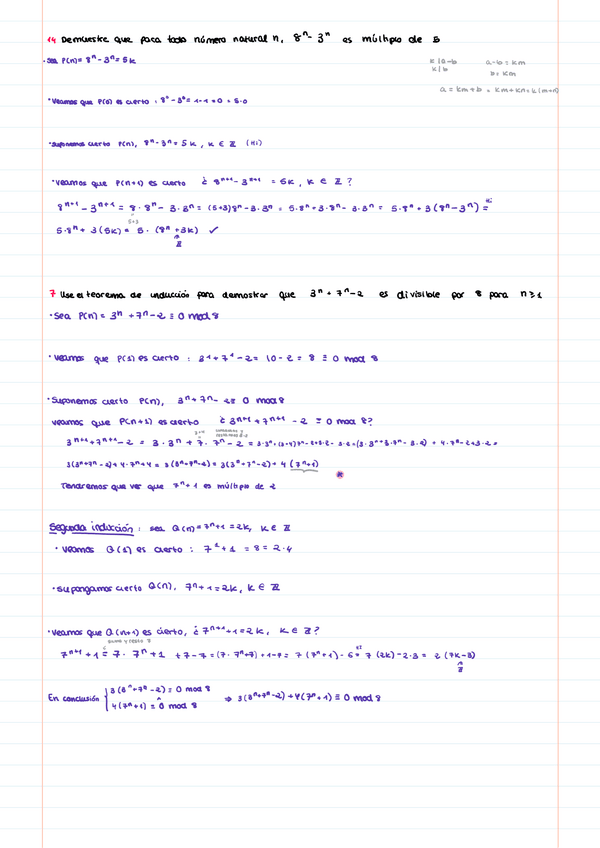 14 Demuestre que para todo número natural n, 8ⁿ - 3ⁿ es múltiplo de 5
· Sea P(n) = 8ⁿ - 3ⁿ = 5k
k/a-b a-b = km
k/b b = kn
a = km + b = km + kn = k(m+n)
· Veamos que P(0) es cierto : 8⁰ - 3⁰ = 1-1 = 0 = 5·0
· Suponemos cierto P(n), 8ⁿ - 3ⁿ = 5k, k ∈ ℤ (HI)
· Veamos que P(n+1) es cierto ¿ 8ⁿ⁺¹ - 3ⁿ⁺¹ = 5k, k ∈ ℤ ?
8ⁿ⁺¹ - 3ⁿ⁺¹ = 8 · 8ⁿ - 3 · 3ⁿ = (5+3)8ⁿ - 3·3ⁿ = 5·8ⁿ + 3·8ⁿ - 3·3ⁿ = 5·8ⁿ + 3(8ⁿ - 3ⁿ) =
5+3
5·8ⁿ + 3(5k) = 5 · (8ⁿ + 3k) ✓
ℤ
7 Use el teorema de inducción para demostrar que 3ⁿ + 7ⁿ - 2 es divisible por 8 para n ≥ 1
· Sea P(n) = 3ⁿ + 7ⁿ - 2 ≡ 0 mod 8
· Veamos que P(1) es cierto : 3¹ + 7¹ - 2 = 10 - 2 = 8 ≡ 0 mod 8
· Suponemos cierto P(n), 3ⁿ + 7ⁿ - 2 ≡ 0 mod 8
Veamos que P(n+1) es cierto ¿ 3ⁿ⁺¹ + 7ⁿ⁺¹ - 2 ≡ 0 mod 8?
3+4 sumamos y restamos 3·2
3ⁿ⁺¹ + 7ⁿ⁺¹ - 2 = 3 · 3ⁿ + 7 · 7ⁿ - 2 = 3·3ⁿ + (3+4)7ⁿ - 2 + 3·2 - 3·2 = (3·3ⁿ + 3·7ⁿ - 3·2) + 4·7ⁿ - 2 + 3·2 =
3(3ⁿ + 7ⁿ - 2) + 4·7ⁿ + 4 = 3(3ⁿ + 7ⁿ - 2) = 3(3ⁿ + 7ⁿ - 2) + 4 (7ⁿ + 1)
Tendremos que ver que 7ⁿ + 1 es múltiplo de 2
Segunda inducción : sea Q(n) = 7ⁿ + 1 = 2k, k ∈ ℤ
· Veamos Q(1) es cierto : 7¹ + 1 = 8 = 2·4
· Supongamos cierto Q(n), 7ⁿ + 1 = 2k, k ∈ ℤ
· Veamos que Q(n+1) es cierto, ¿ 7ⁿ⁺¹ + 1 = 2k, k ∈ ℤ ?
sumo y resto 7
7ⁿ⁺¹ + 1 = 7 · 7ⁿ + 1 + 7 - 7 = (7 · 7ⁿ + 7) + 1 - 7 = 7(7ⁿ + 1) - 6 = 7(2k) - 2·3 = 2(7k - 3)
ℤ
En conclusión { 3(3ⁿ + 7ⁿ - 2) ≡ 0 mod 8
4(7ⁿ + 1) ≡ 0 mod 8 ⇒ 3(3ⁿ + 7ⁿ - 2) + 4(7ⁿ + 1) ≡ 0 mod 8